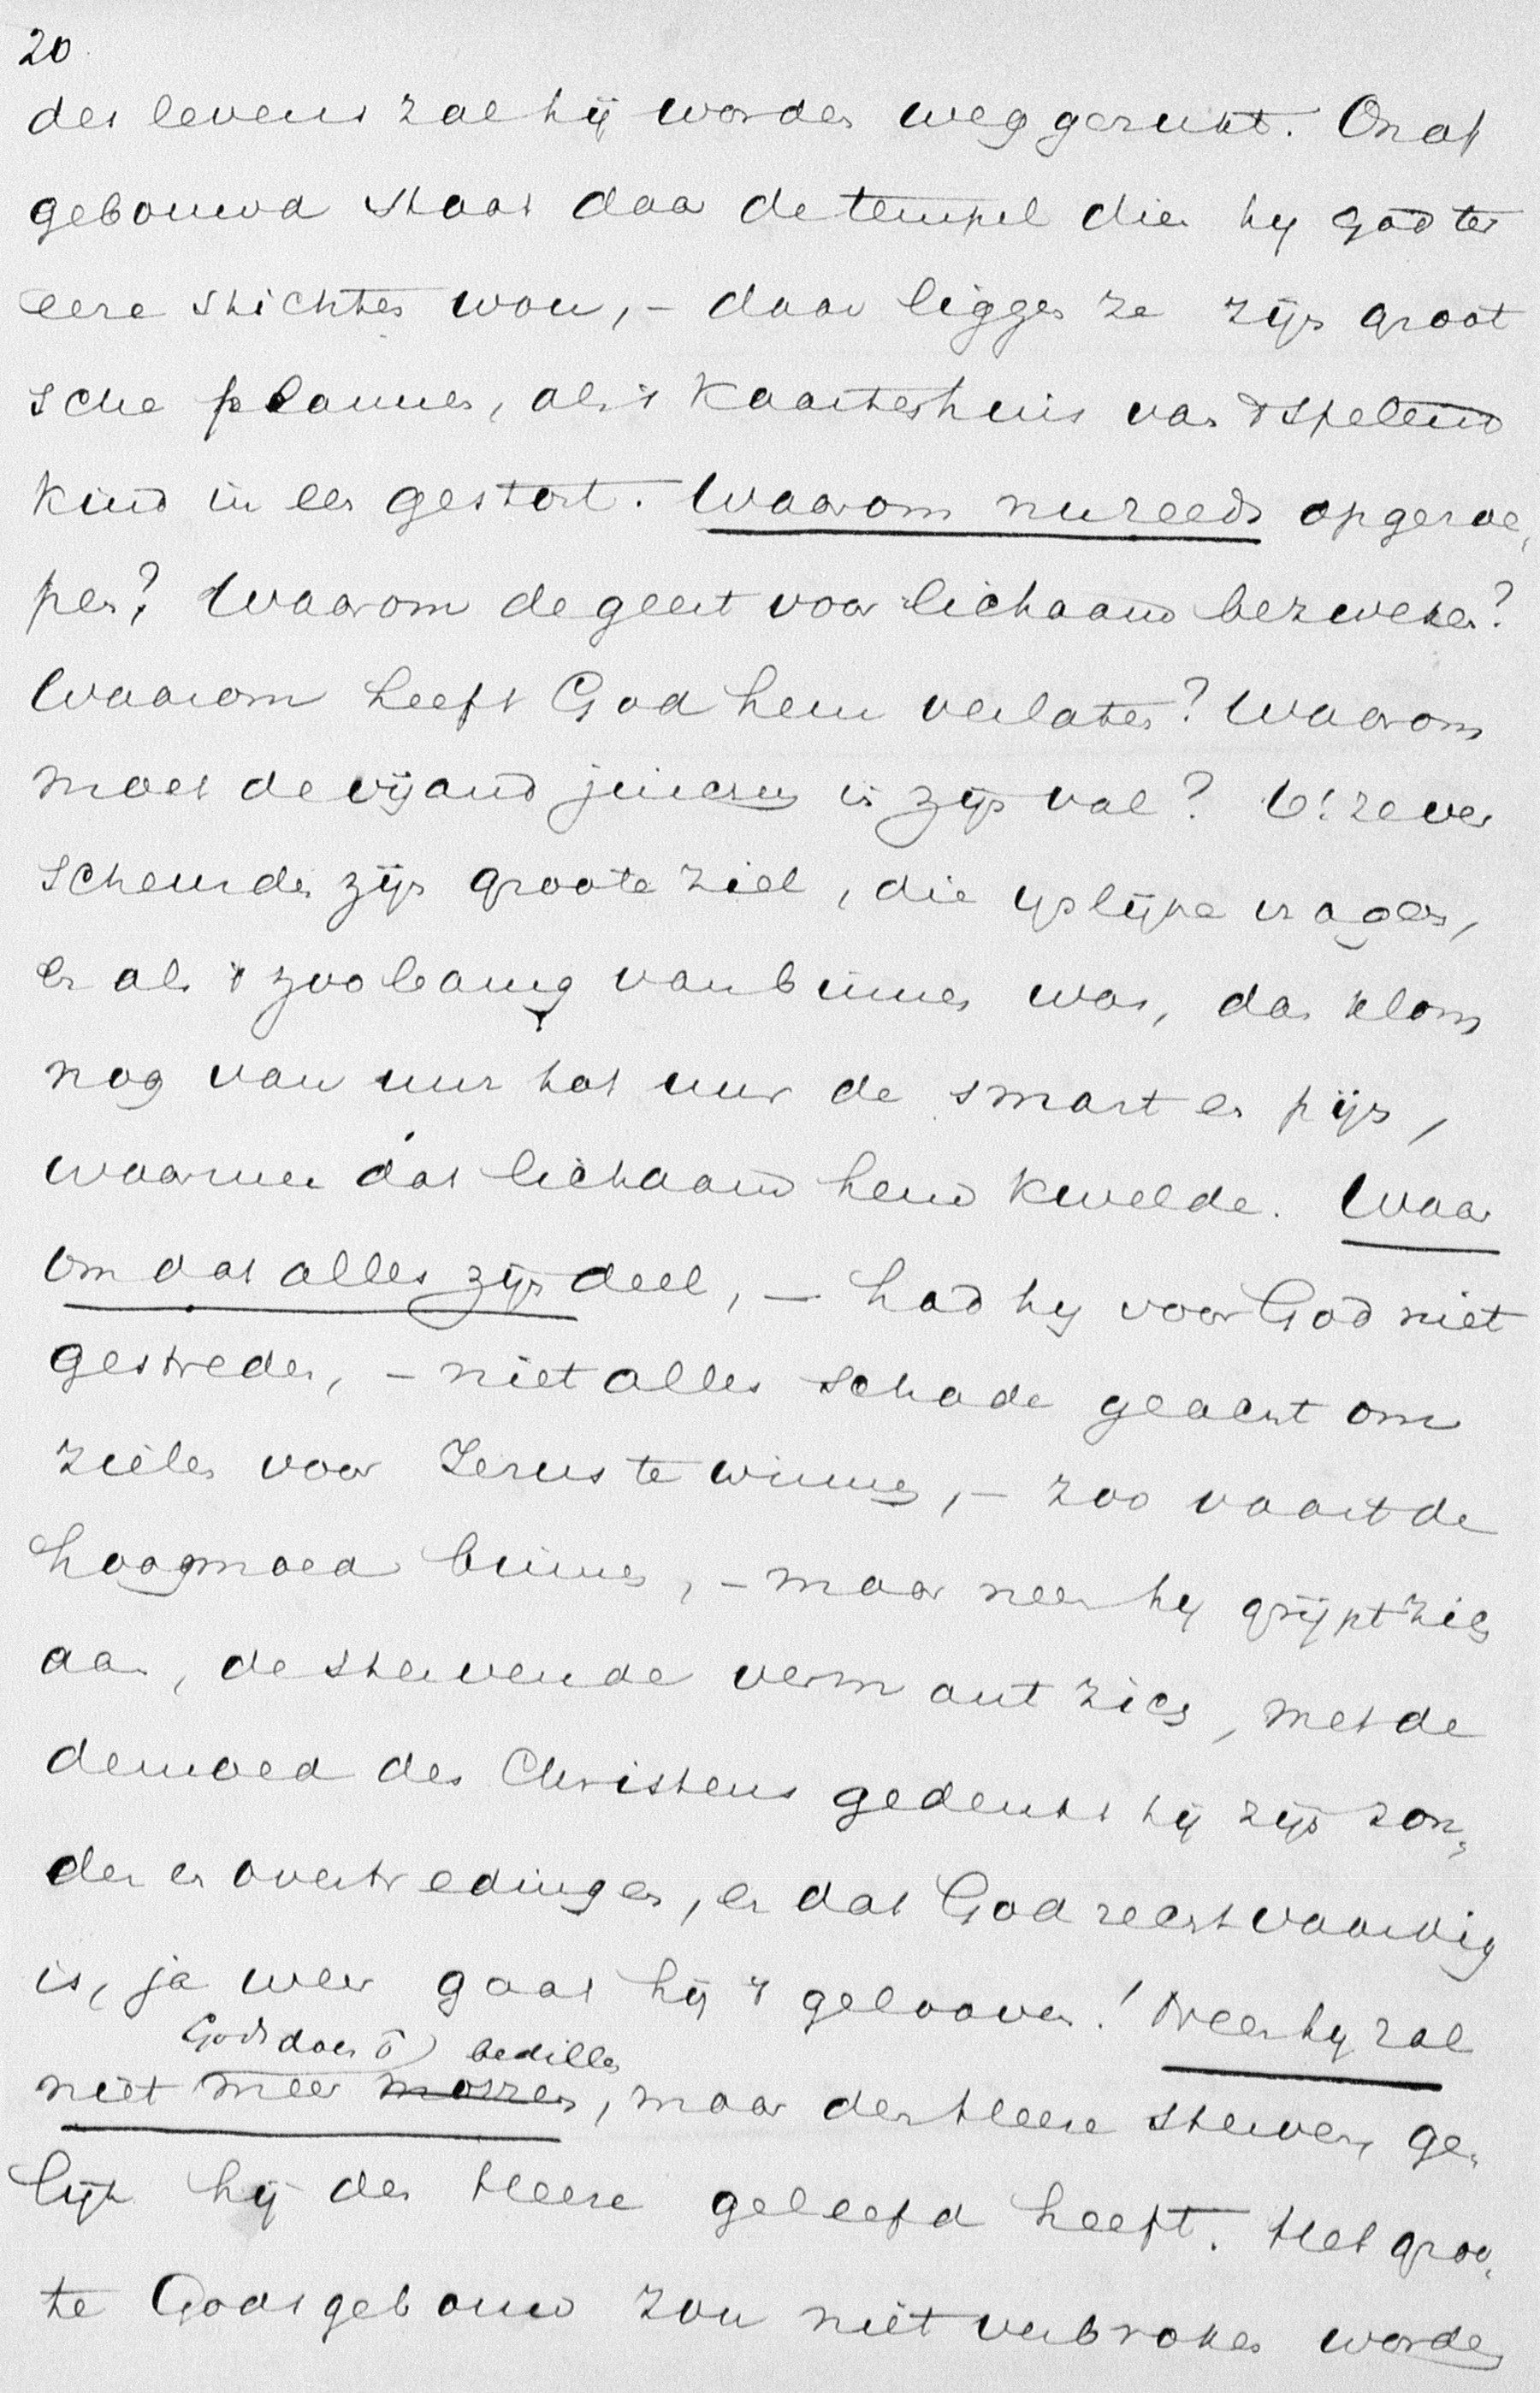 20
des levens zal hij worden weggerukt. Onaf
gebouwd staat daar de tempel dien hij God ter
eere stichten wou, - daar liggen ze zijn groot
sche plannen, als 't kaartenhuis van 't spelend
kind in een gestort. Waarom nu reeds opgeroe,
pen? Waarom de geest voor 't lichaam bezweken?
Waarom heeft God hem verlaten? Waarom
moet de vijand juichen in zijn val? O! ze ver
scheurden zijn groote ziel, die ijslijke vragen,
en als 't zoo bang van binnen was, dan klom
nog van uur tot uur de smart en pijn,
waarmee dat lichaam hem kwelde. Waar
om dat alles zijn deel, - had hij voor God niet
gestreden, - niet alles schade geacht om
zielen voor Jezus te winnen, - zoo vaart de
hoogmoed binnen, - maar neen hij grijpt zich
aan, de stervende vermant zich, met de
demoed des Christens gedenkt hij zijn zon,
den en overtredingen, en dat God rechtvaardig
is, ja weer gaat hij 't gelooven! Neen hij zal
Gods doen bedillen
niet meer morren, maar den Heere sterven, ge,
lijk hij den Heere geleefd heeft. Het groo,
te Godsgebouw zou niet verbroken worden